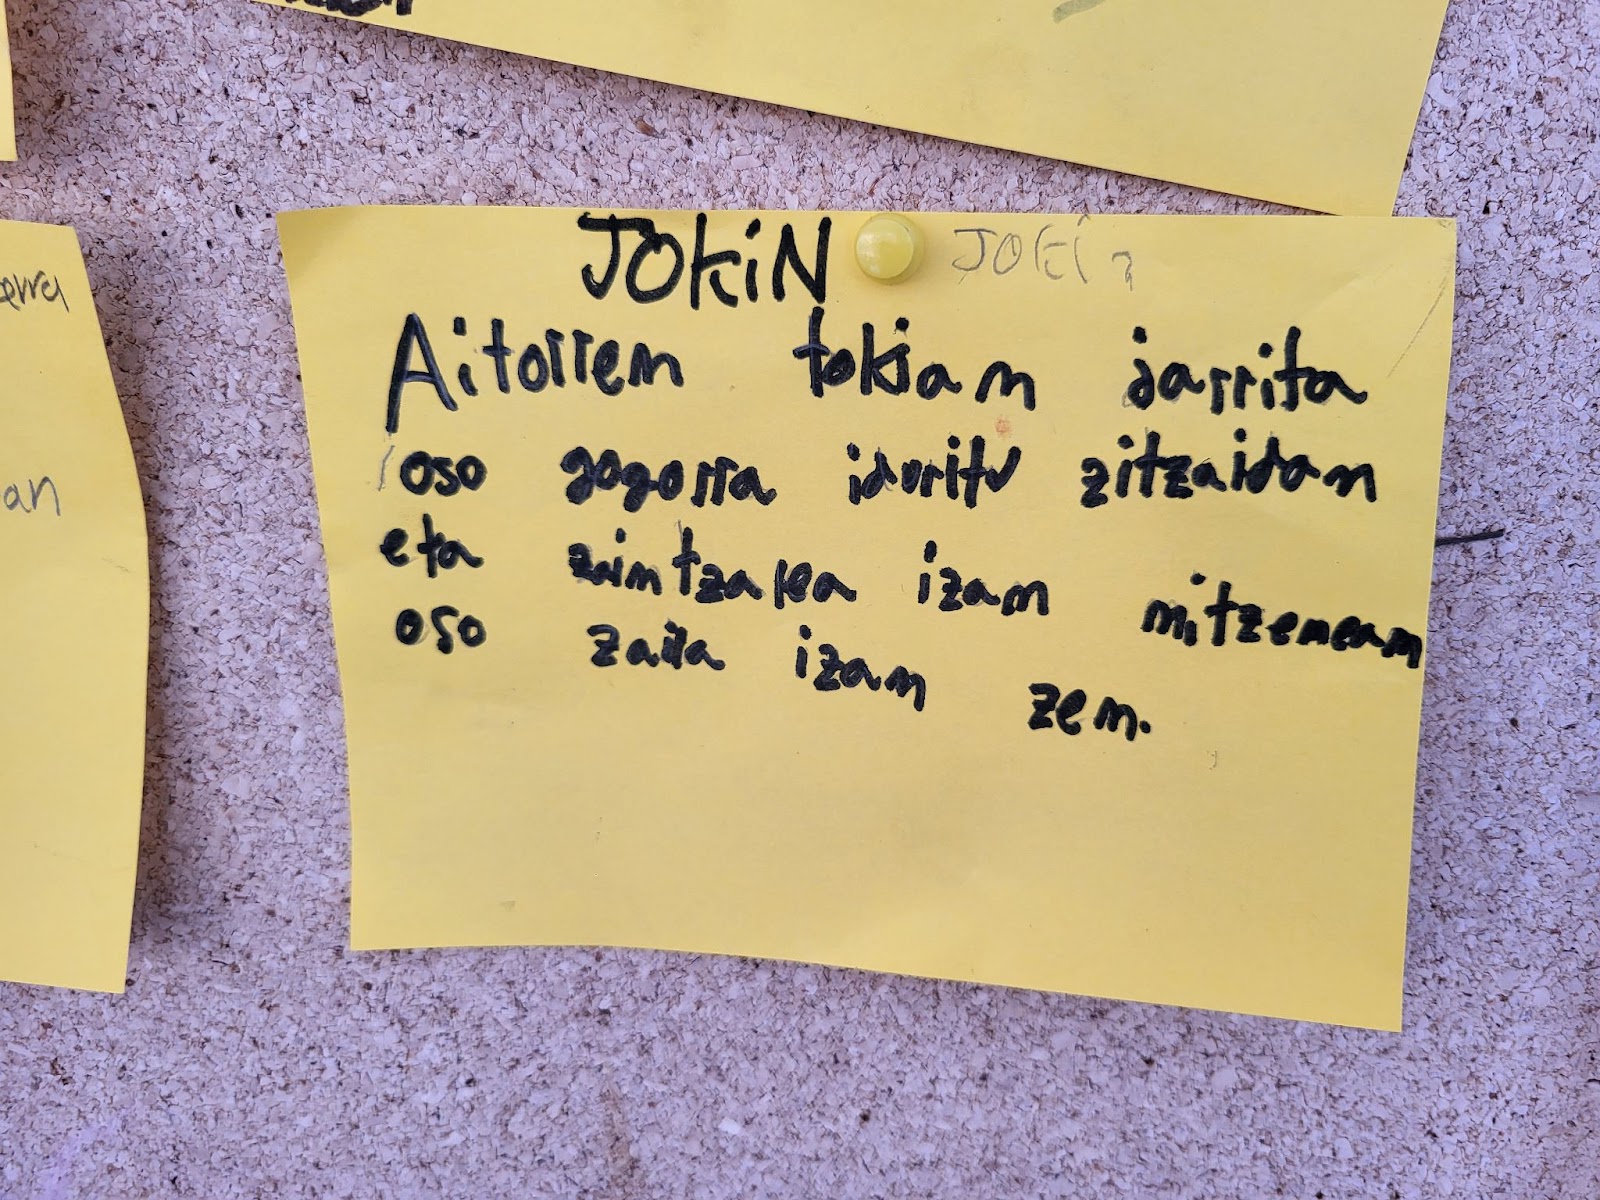 JOKiN JOKi
Aitorren tokian jarrita
oso gogorra iduritu zitzaidan
eta zaintzalea izan nitzenean
oso zaila izan zen.
erra
an